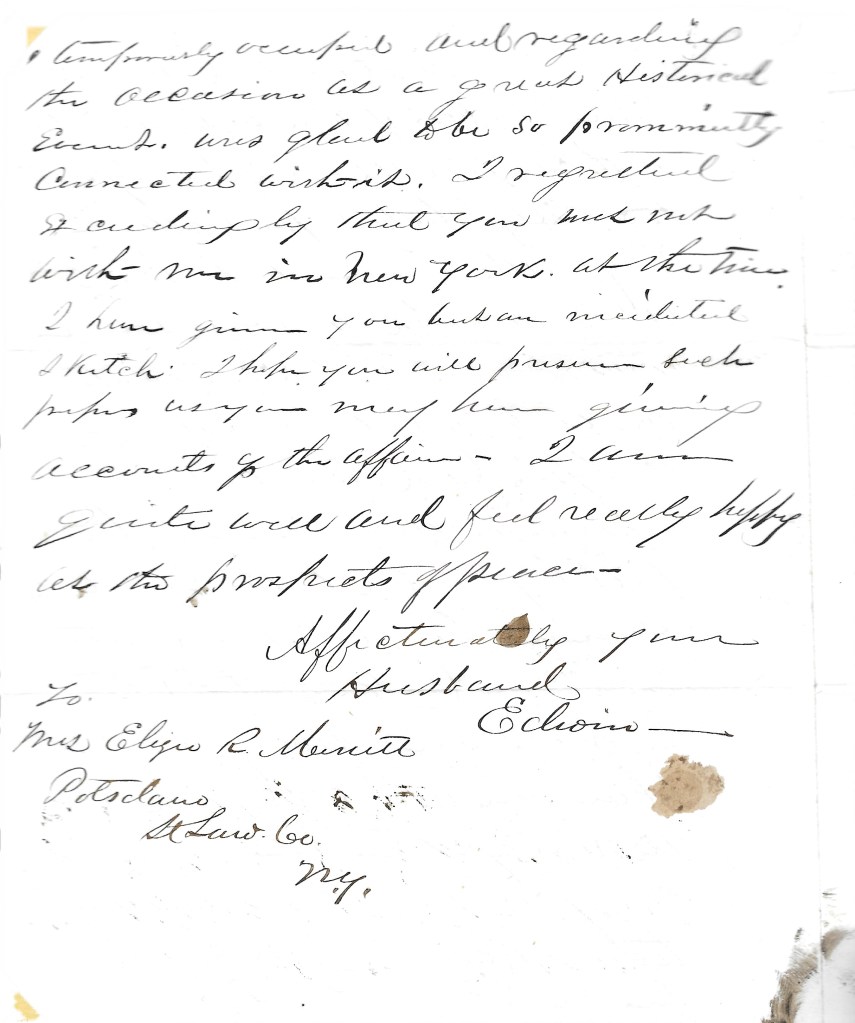 temporarily occupied and regarding
the occasion as a great Historical
Event. was glad to be so prominently
Connected with it. I regretted
Exceedingly that you was not
with me in New York. at the time.
I have given you but an incidental
Sketch. I hope you will preserve such
papers as you may have giving
accounts of the affair – I am
quite well and feel really happy
at the prospects of peace –
Affectionately your
Husband
Edwin
To.
Mrs Eliza R. Merritt
Potsdam
St Law. Co.
N.Y.